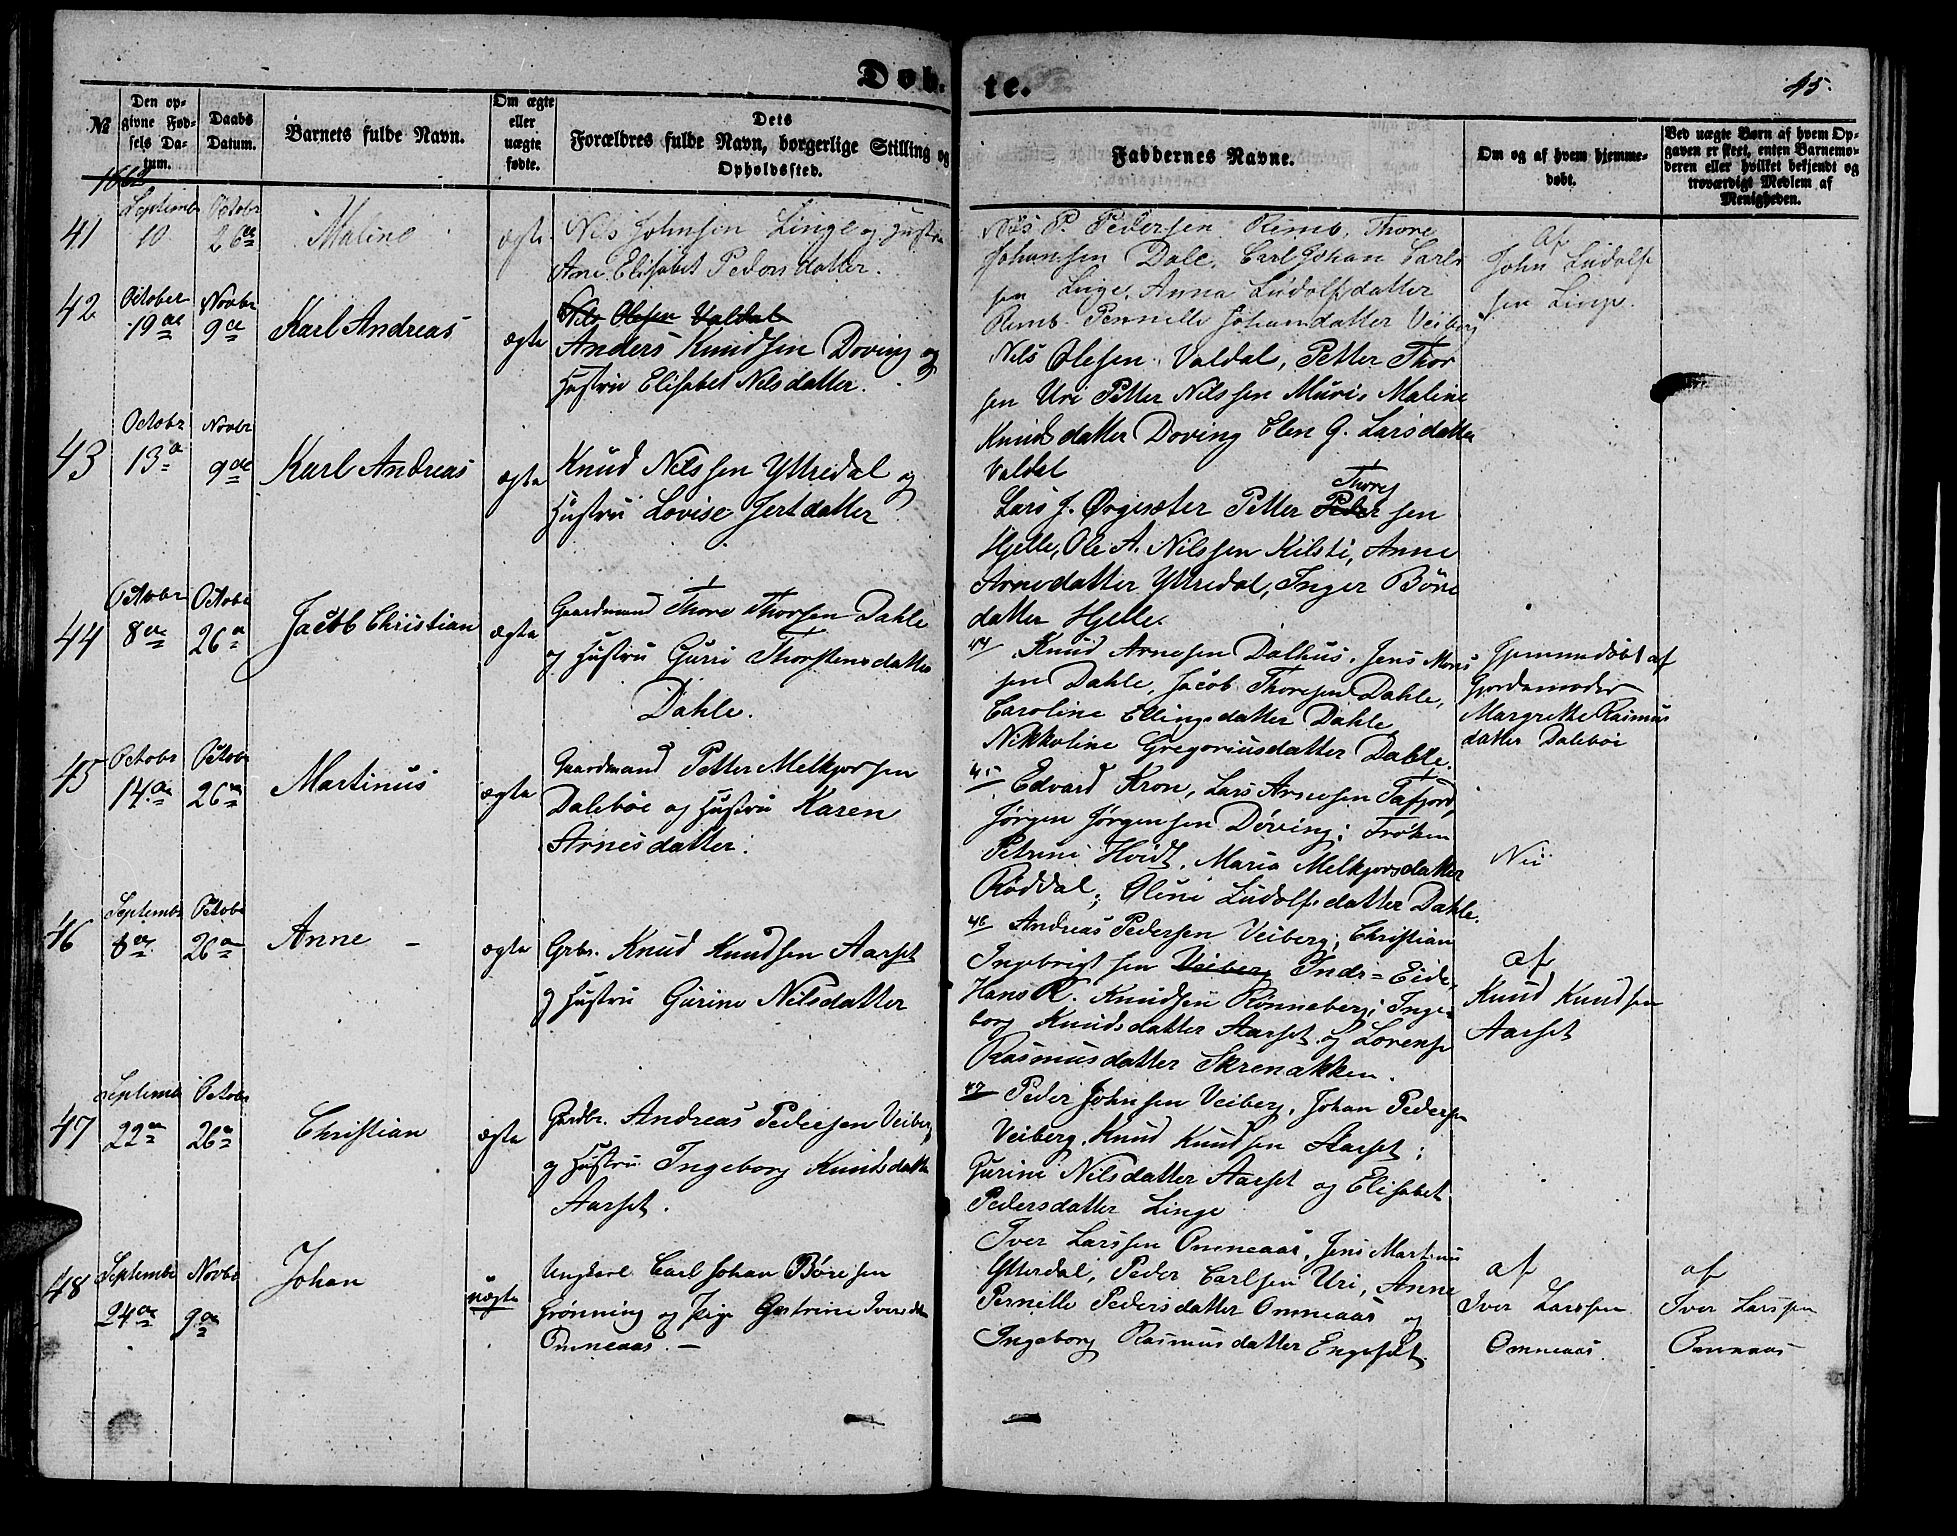 Døb-
te.
45.
№
Den op-
givne Fød-
sels Da-
tum.
Daabs
Datum.
Barnets fulde Navn.
Om ægte
eller
uægte
fødte.
Dets
Forældres fulde Navn, borgerlige Stilling og
Opholdssted.
Faddernes Navne.
Om og af hvem hjemme-
døbt.
Ved uægte Børn af hvem Op-
gaven er skeet, enten Barnemo-
deren eller hvilket bekjendt og
troværdigt Medlem af
Menigheden.
41
Septembr
10
Octobr
26de
Maline
ægte
Nils Johnsen Linge og Hustru
Ane Elisabet Pedersdatter.
Nils P. Pedersen Remb, Thore
Johansen Dale, Carl Johan Carl-
sen Linge, Anna Ludolfsdatter
Remb. Pernelle Johansdatter Veiberg
Af
John Ludolf
sen Linge.
42
October
19de
Novbr
9de
Karl Andreas
ægte
Nils Olesen Valdal
Anders Knudsen Doving og
Hustru Elisabet Nilsdatter.
Nils Olesen Valdal, Petter Thor
sen Uri Petter Nilssen Muris Maline
Knudsdatter Doving Elen G. Larsdatter
Valdal
43
Octobr
13de
Novbr
9de
Karl Andreas
ægte
Knud Nilssen Yttredal og
Hustru Lovise Jertdatter
Lars J. Ørgesæter Petter Peder Thores sen
Hjelle, Ole A. Nilssen Kilsti, Anne
Arnesdatter Yttredal, Inger Böre
datter Hjelle.
44
Octobr
8de
Octobr
26de
Jacob Christian
ægte
Gaardmand Thore Thorsen Dahle
og Hustru Gurri Thorstensdatter
Dahle.
44 Knud Arnesen Dalhus, Jens Mons
sen Dahle, Jacob Thoresen Dahle,
Caroline Ellingsdatter Dahle
Nikkoline Gregoriusdatter Dahle.
Hjemmedøbt af
Gjordemoder
Margrethe Rasmus
datter Dalebøe
45
Octobr
14de
Octobr
26de
Martinus
ægte
Gaardmand Petter Melkjorsen
Dalebøe og Hustru Karen
Arnesdatter.
45 Edvard Kron, Lars Arnesen Tafjord,
Jørgen Jørgensen Døving; Frøken
Petrine Hvidt, Maria Melkjorsdatter
Røddal; Oline Ludolfsdatter Dahle.
Nei
46
Septembr
8de
Octobr
26de
Anne -
ægte
Grbr. Knud Knudsen Aarset
og Hustru Gurine Nilsdatter
46 Andreas Pedersen Veiberg; Christian
Ingebrigtsen Veiberg Indr=Eide,
Hans R. Knudsen Rønneberg; Inge-
borg Knudsdatter Aarset og Lorense
Rasmusdatter Skrenakken.
af
Knud Knudsen
Aarset
47
Septembr
22de
Octobr
26de
Christian
ægte
Gaardbr. Andreas Pedersen Veiberg
og Hustru Ingeborg Knudsdatter
Aarset.
47 Peder Johnsen Veiberg, Johan Pedersen
Veiberg, Knud Knudsen Aarset;
Gurine Nilsdatter Aarset og Elisabet
Pedersdatter Linge
48
Septembr
24de
Novbr
9de
Johan
uægte
Ungkarl Carl Johan Böresen
Grönning og Pige Gustrine Iversdtr
Omneaas. -
Iver Larssen Omneaas, Jens Martinus
Ytterdal, Peder Carlsen Uri, Anne
Pernille Pedersdatter Omneaas og
Ingeborg Rasmusdatter Engeset.
af
Iver Larssen
Omneaas.
af
Iver Larssen
Omneaas